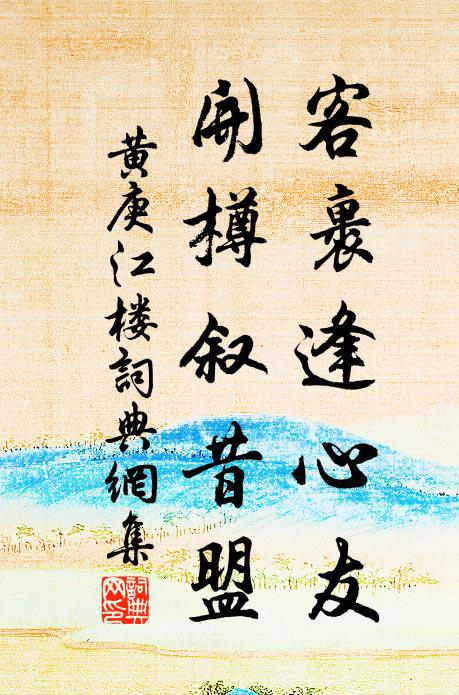 客裏逢心友
開樽叙昔盟
黄庚江楼詞典網集
詞典网印